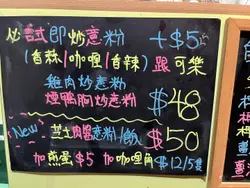 必試即炒意粉 +$5
(香蒜/咖喱/香辣) 跟可樂
雞肉炒意粉
煙鴨胸炒意粉 $48
New 芝士肉醬意粉/飯 $50
加煎蛋$5 加咖喱角$12/5隻